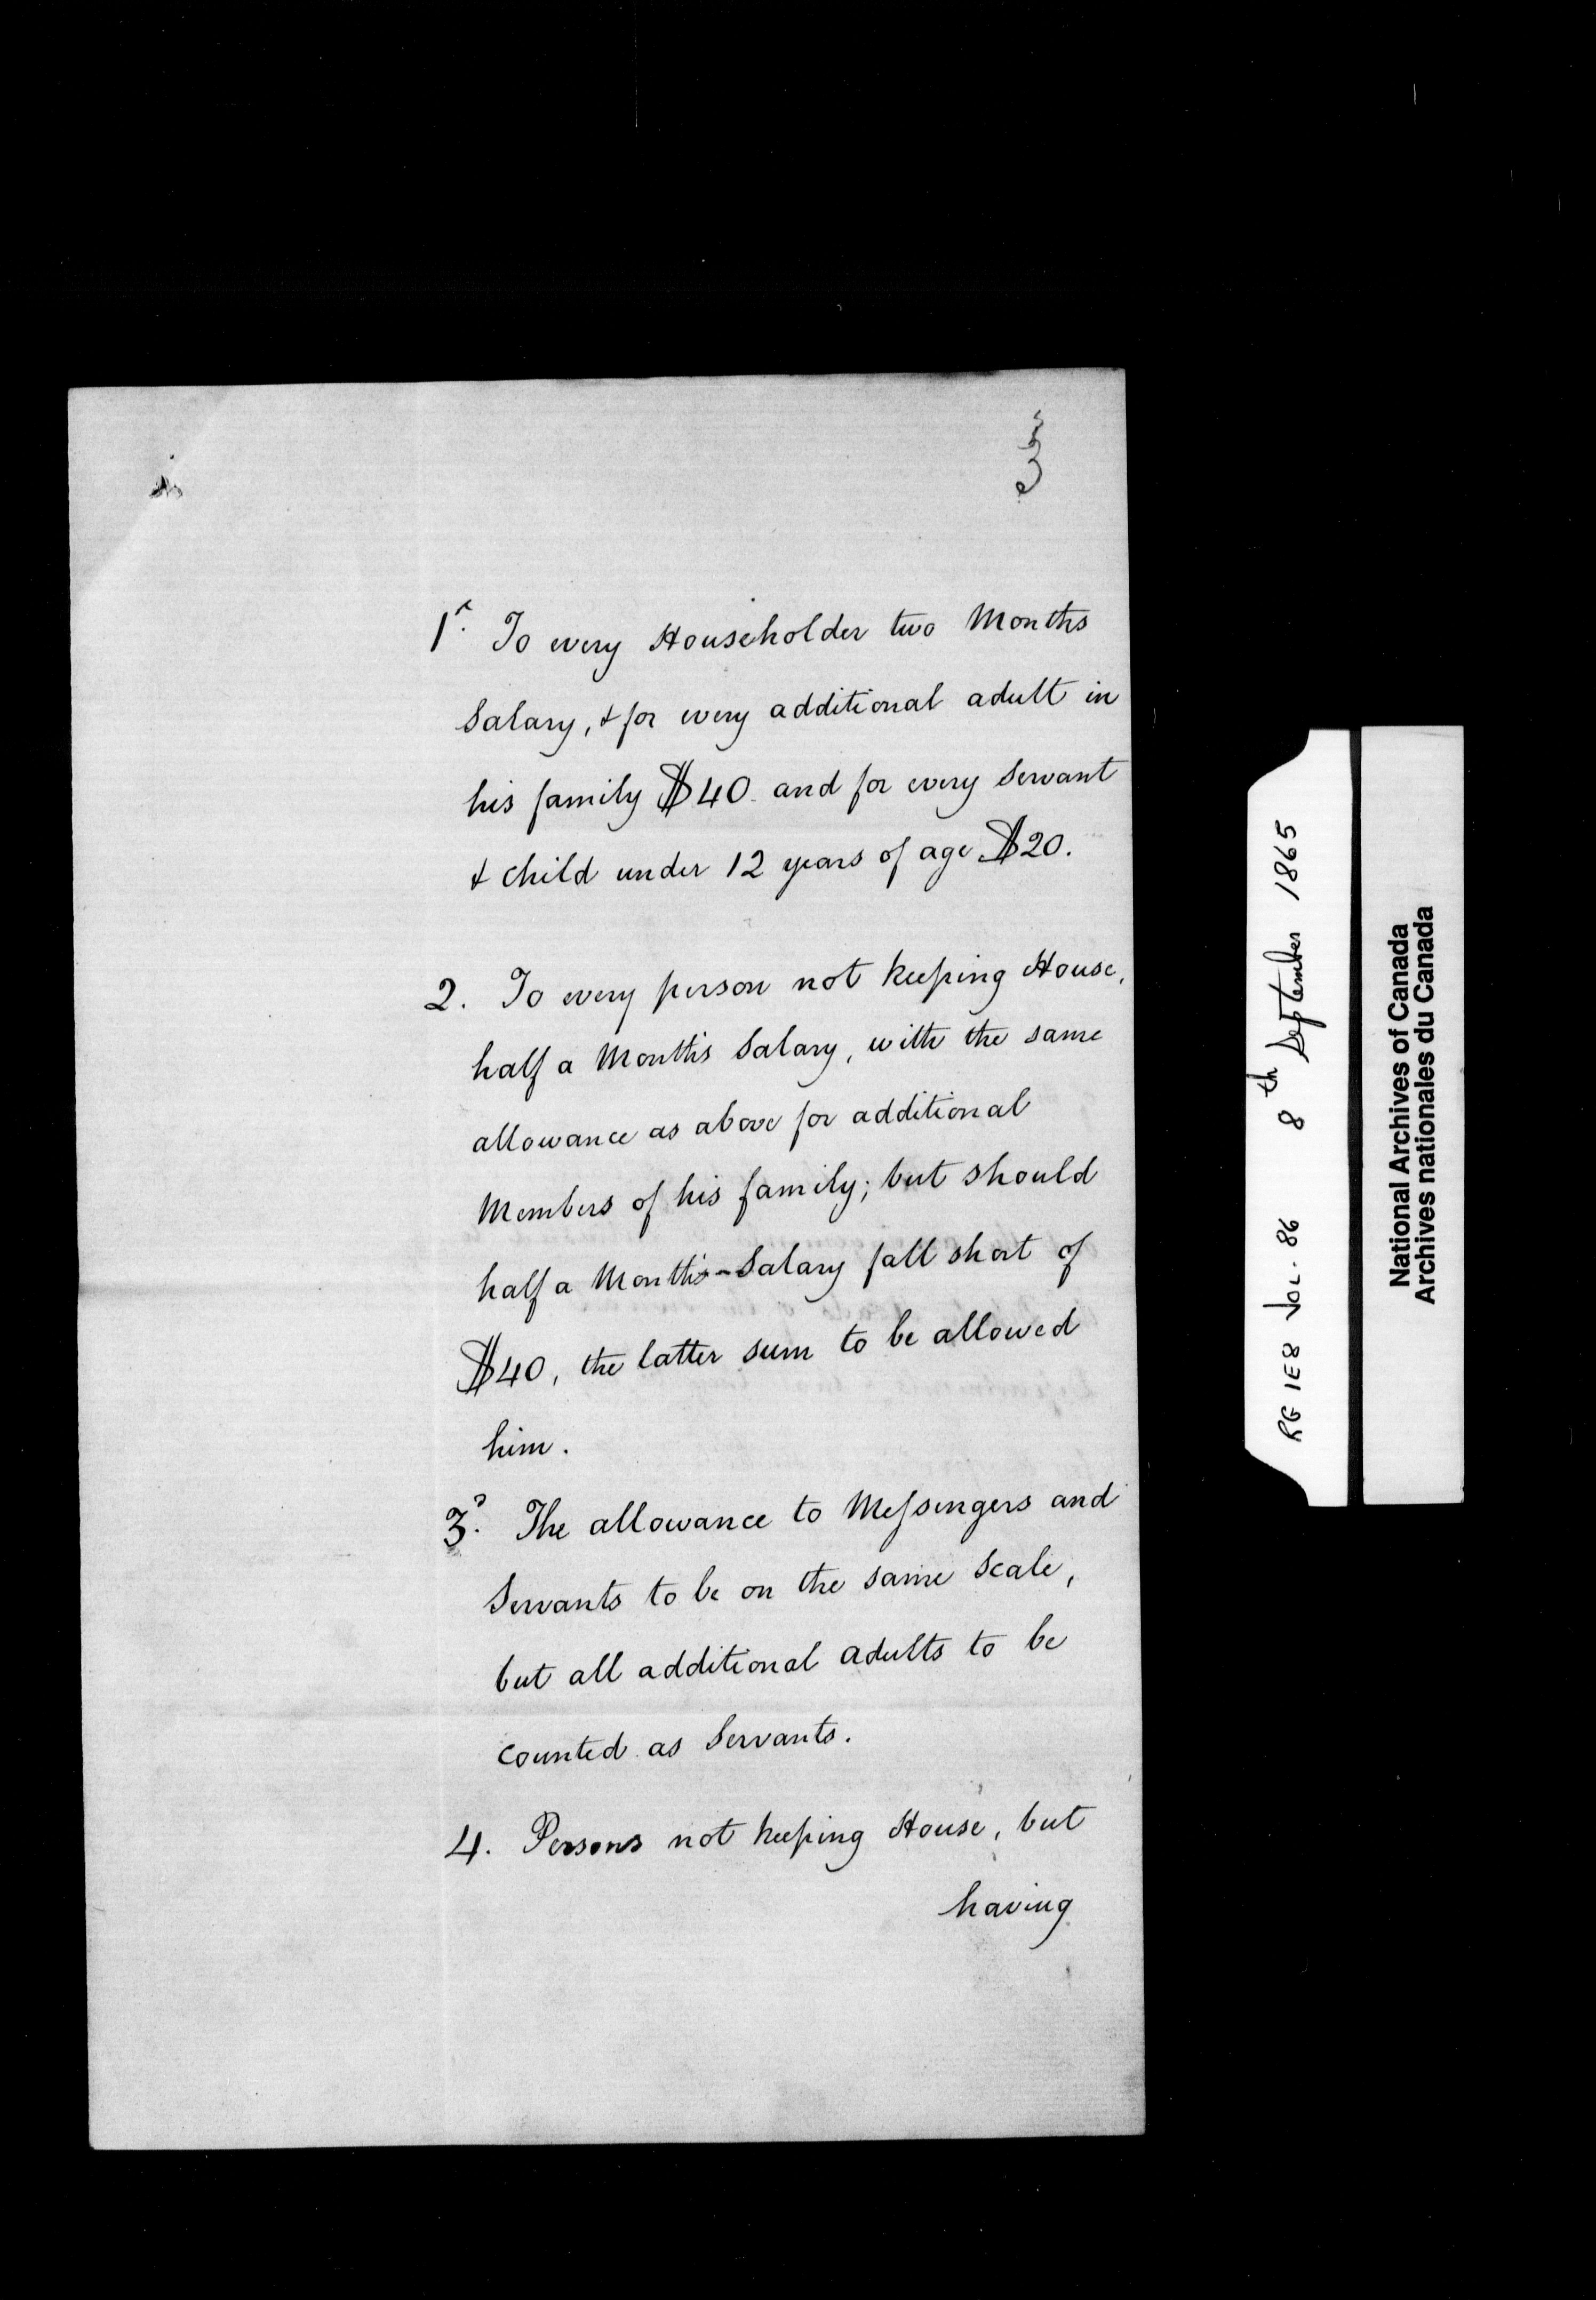 1. To every Householder two Months
Salary, & for every additional adult in
his family $40. and for every Servant
& child under 12 years of age $20.
2. To every person not keeping House,
half a Month's Salary, with the same
allowance as above for additional
Members of his family; but should
half a Month's - Salary fall short of
$40, the latter sum to be allowed
him.
3. The allowance to Messengers and
Servants to be on the same Scale,
but all additional adults to be
counted as Servants.
4. Persons not keeping House, but
having
RG 1E8 Vol. 86 8th September 1865
National Archives of Canada
Archives nationales du Canada